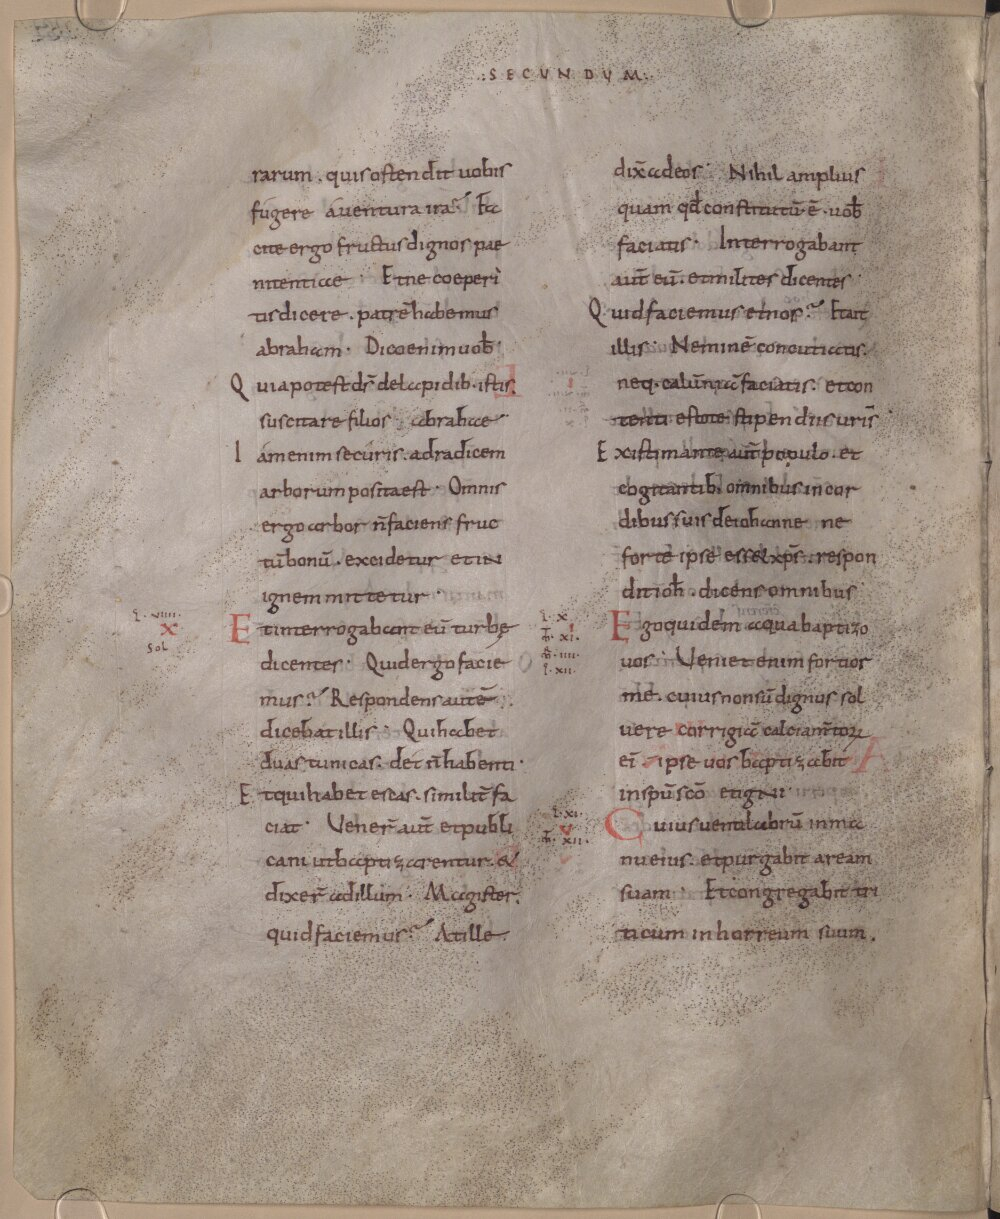 .:SECUNDUM:.
rarum . quis ostendit uobis
fugere a uentura ira? Fa
cite ergo fructus dignos pae
nitentiae · Et ne coeperi
tis dicere . patrē habemus
abraham · Dico enim uob̄ ·
Quia potest d̄s de lapidib· istis
suscitare filios abrahae ·
Iam enim securis . ad radicem
arborum posita est · Omnis
ergo arbor n̄ faciens fruc
tū bonū . excidetur et in
ignem mittetur ·
L · VIIII ·
X
Sol
Et interrogabant eū turbę
dicentes · Quid ergo facie
mus? Respondens autē
dicebat illis · Qui habet
duas tunicas . det n̄ habenti ·
Et qui habet escas . similit̄ fa
ciat · Uener̄ aut̄ et publi
cani ut baptizarentur . &
dixer̄ ad illum · Magister .
quid faciemus? At ille
dix̄ ad eos · Nihil amplius
quam qd̄ constitutū ē . uob̄
faciatis · Interrogabant
aut̄ eū . et milites dicentes ·
Quid faciemus et nos? Et ait
illis · Neminē concutiatis .
neq· calūniā faciatis . et con
tenti estote stipendiis uris̄ ·
Existimante aut̄ populo . et
cogitantib· omnibus in cor
dibus suis de iohanne ne
forte ipse esset xp̄s . respon
dit ioh̄ . dicens omnibus
L · X ·
M̄ · XI ·
IIII ·
I · XII ·
Ego quidem aqua baptizo
uos · Veniet enim fortior
me . cuius non sū dignus sol
uere corrigiā calciam̄torꝝ
ei̅ . ipse uos baptizabit
in sp̄u sc̄o et igni ·
L · XI ·
V
M̄ · XII ·
Cuius uentilabrū in ma
nu eius . et purgabit aream
suam · Et congregabit tri
ticum in horreum suum .